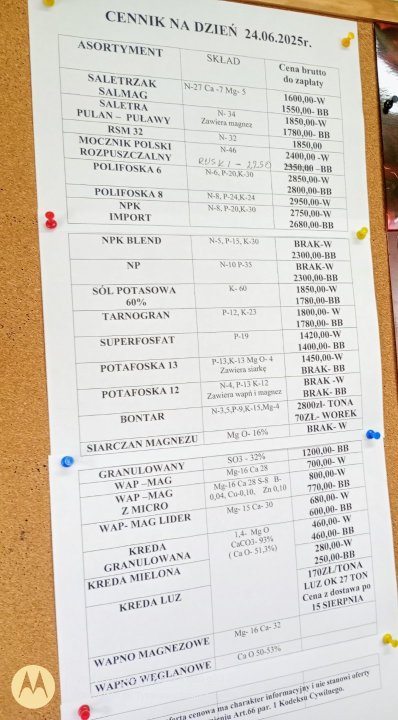 CENNIK NA DZIEŃ 24.06.2025r.
ASORTYMENT SKŁAD Cena brutto
do zapłaty
SALETRZAK N-27 Ca -7 Mg- 5 1600,00-W
SALMAG 1550,00- BB
SALETRA N- 34 1850,00-W
PULAN – PUŁAWY Zawiera magnez 1780,00- BB
RSM 32 N- 32 1850,00
MOCZNIK POLSKI N-46 2400,00 -W
ROZPUSZCZALNY RUSKI - 2250 2350,00 –BB
POLIFOSKA 6 N-6, P-20,K-30 2850,00-W
2800,00- BB
POLIFOSKA 8 N-8, P-24,K-24 2950,00-W
NPK N-8, P-20,K-30 2750,00-W
IMPORT 2680,00-BB
NPK BLEND N-5, P-15, K-30 BRAK-W
2300,00-BB
NP N-10 P-35 BRAK-W
2300,00-BB
SÓL POTASOWA K- 60 1850,00-W
60% 1780,00-BB
TARNOGRAN P-12, K-23 1800,00-W
1780,00- BB
SUPERFOSFAT P-19 1420,00-W
1400,00- BB
POTAFOSKA 13 P-13,K-13 Mg O- 4 1450,00-W
Zawiera siarkę BRAK- BB
POTAFOSKA 12 N-4, P-13 K-12 BRAK -W
Zawiera wapń i magnez BRAK- BB
BONTAR N-3,5,P-9,K-15,Mg-4 2800zł- TONA
70ZŁ- WOREK
SIARCZAN MAGNEZU Mg O- 16% BRAK- W
GRANULOWANY SO3 - 32% 1200,00- BB
WAP –MAG Mg-16 Ca 28 700,00- W
WAP –MAG Mg-16 Ca 28 S-8 B- 800,00-W
Z MICRO 0,04, Cu-0,10, Zn 0,10 770,00- BB
WAP- MAG LIDER Mg- 15 Ca- 30 680,00- W
600,00- BB
KREDA 1,4- Mg O 460,00- W
GRANULOWANA CaCO3- 93% 460,00- BB
KREDA MIELONA ( Ca O- 51,3%) 280,00-W
250,00-BB
KREDA LUZ 170ZŁ/TONA
LUZ OK 27 TON
Cena z dostawa po
15 SIERPNIA
WAPNO MAGNEZOWE Mg- 16 Ca- 32
WAPNO WĘGLANOWE Ca O 50-53%
oferta cenowa ma charakter informacyjny i nie stanowi oferty
Art.66 par. 1 Kodeksu Cywilnego.